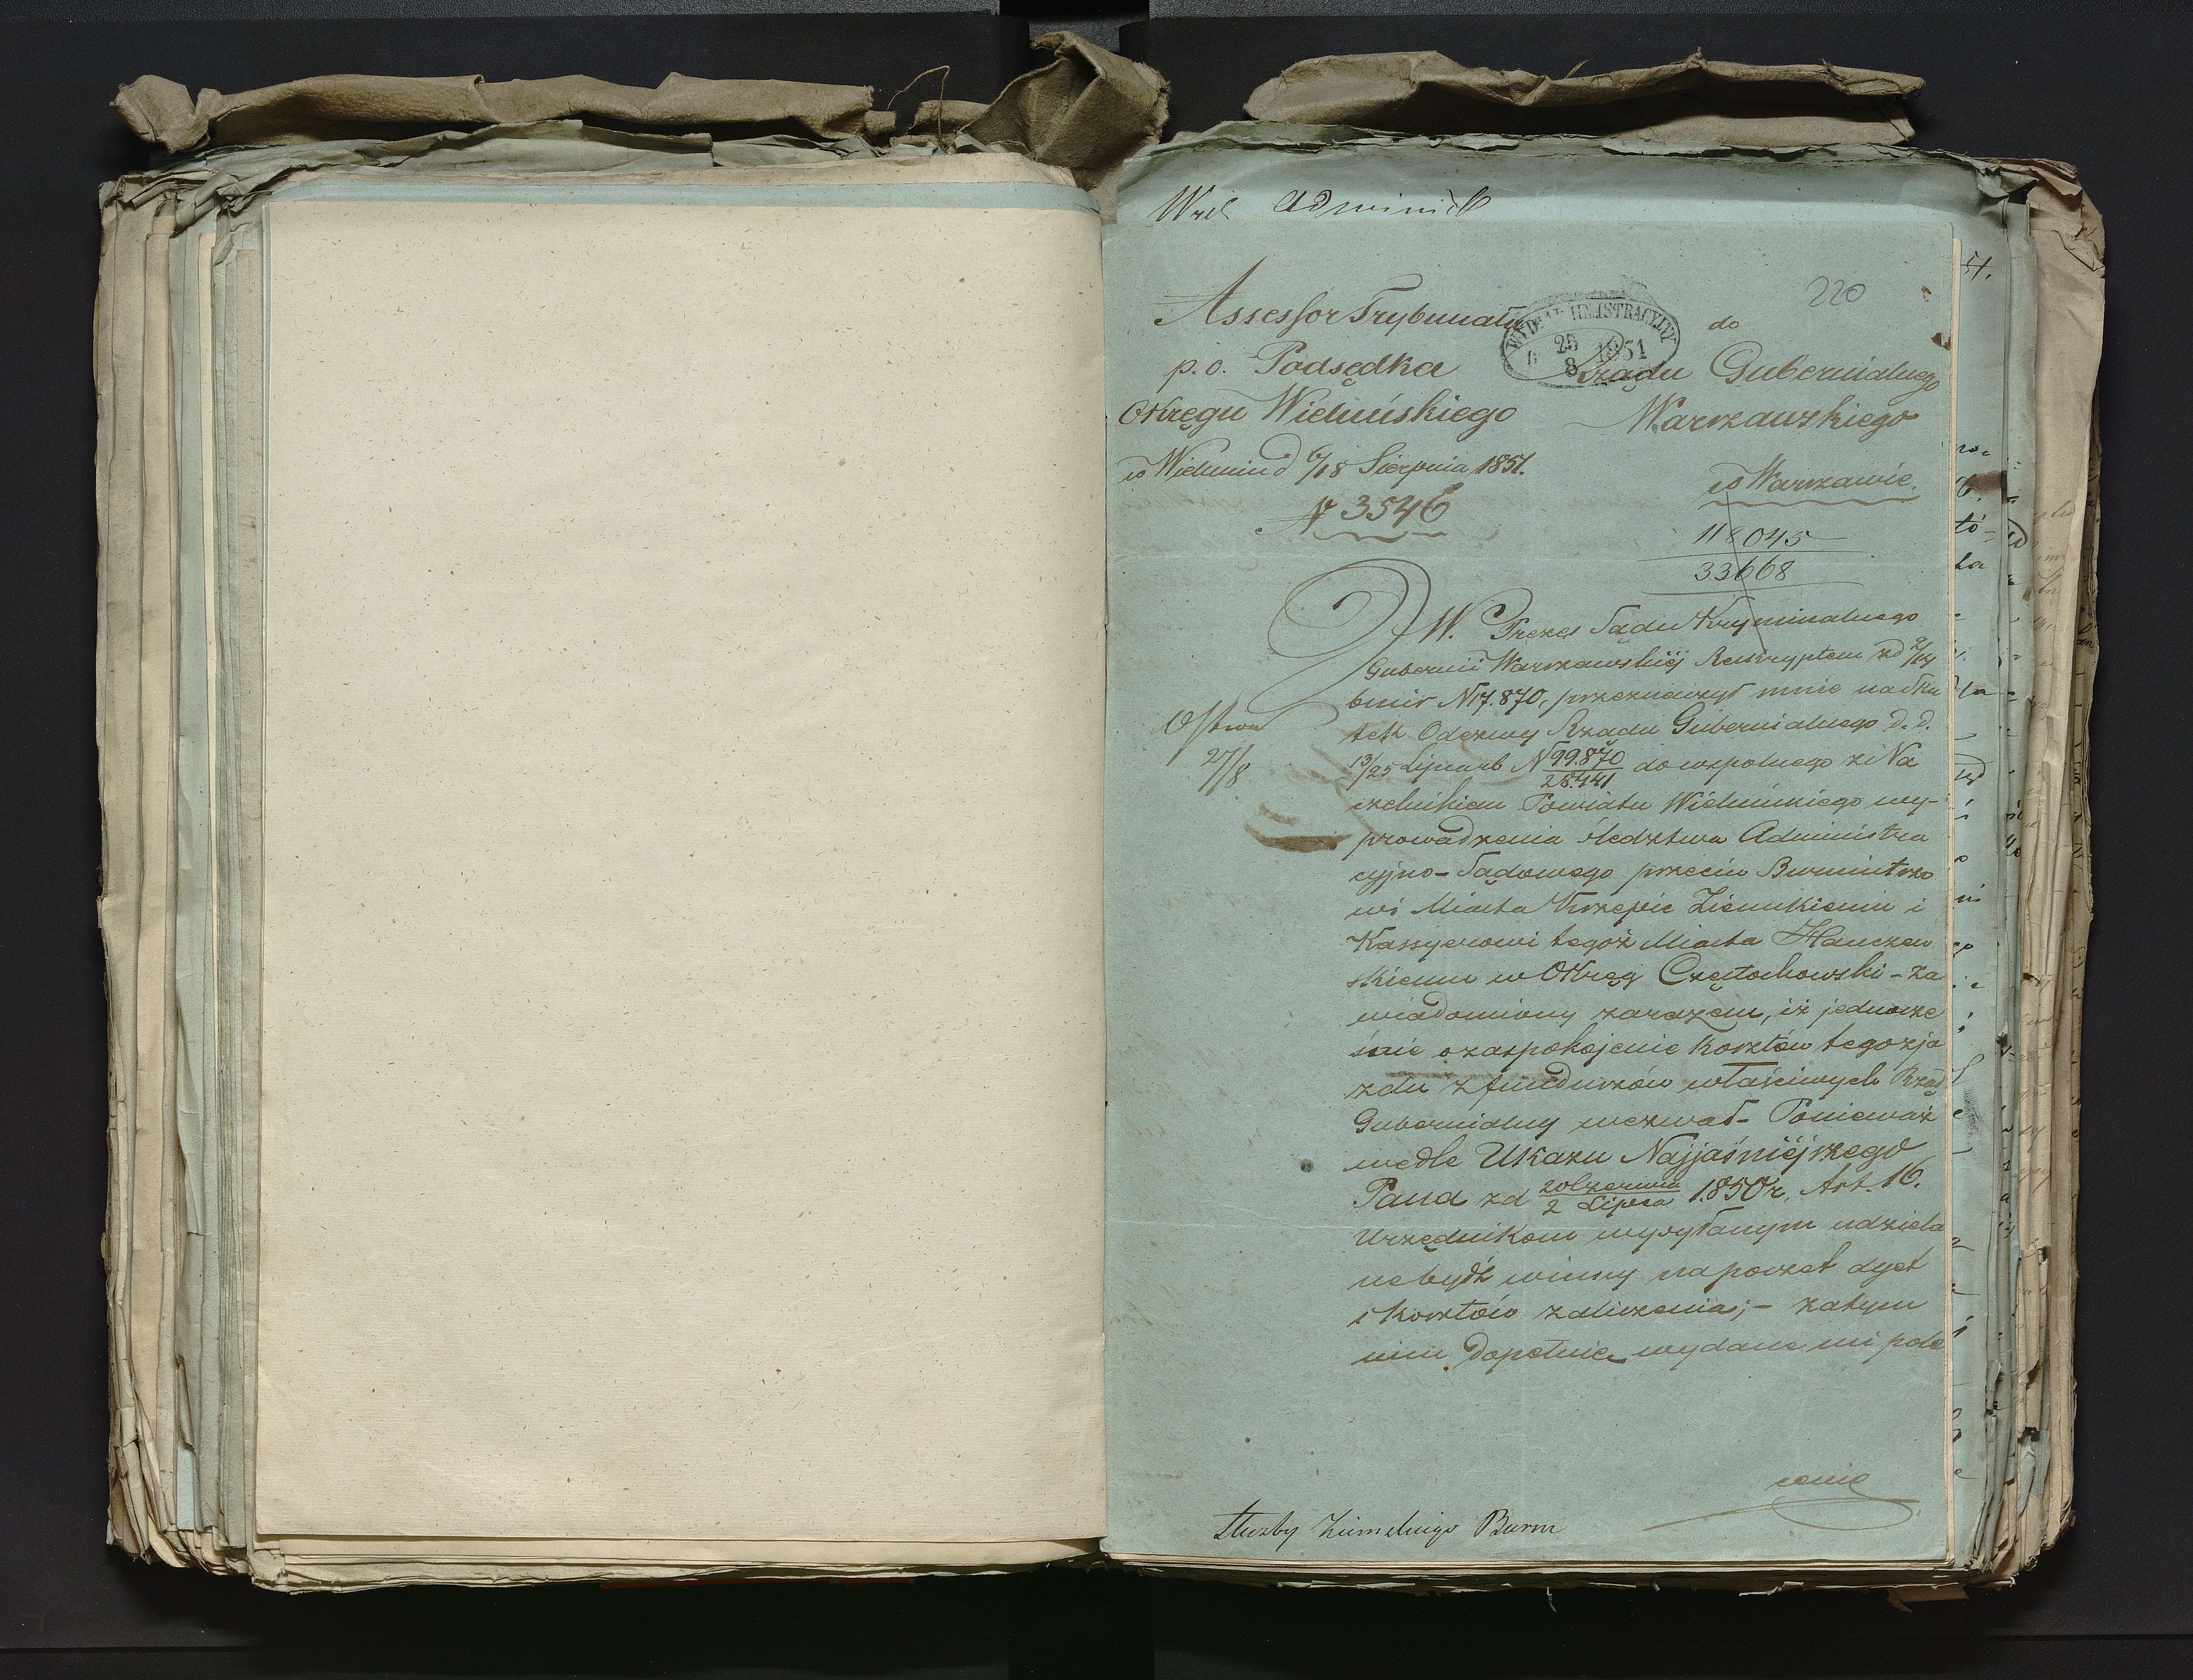 Adminis
220
Assessor Trybunału
do
p. o. Podsędka
Rządu Gubernialnego
Okręgu Wieluńskiego
Warszawskiego
w Wieluniu d 6/18 Sierpnia 1851.
w Warszawie.
N 3546
118045
33668
JW. Prezes Sądu Kryminalnego
Gubernii Warszawskiéj Reskryptem z d 2/14
bmir N 17.870, przeznaczył mnie na sku
tek Odezwy Rządu Gubernialnego d. d.
13/25 Lipca rb N 99.870/28.441 do wspolnego z Na
czelnikiem Powiatu Wieluńskiego wy-
prowadzenia śledztwa Administra
cyjno-Sądowego przeciw Burmistrzo
wi Miasta Krzepic Ziemskiemu i
Kassyerowi tegoż Miasta Hanczew
skiemu w Okręg Częstochowski - za
wiadomiony zarazem, iż jednocze
śnie o zaspokojenie kosztów tego zja
zdu z funduszów właściwych Rząd
Gubernialny wezwał - Ponieważ
wedle Ukazu Najjaśniéjszego
Pana z d 20 Czerwca/2 Lipca 1850 r, Art. 16.
Urzędnikom wysyłanym udziela
ne bydź winny na poczet dyet
i kosztów zaliczenia; - zatym
nim dopełnię wydane mi pole
cenie
27/8
Służby Burm
25/8 1851